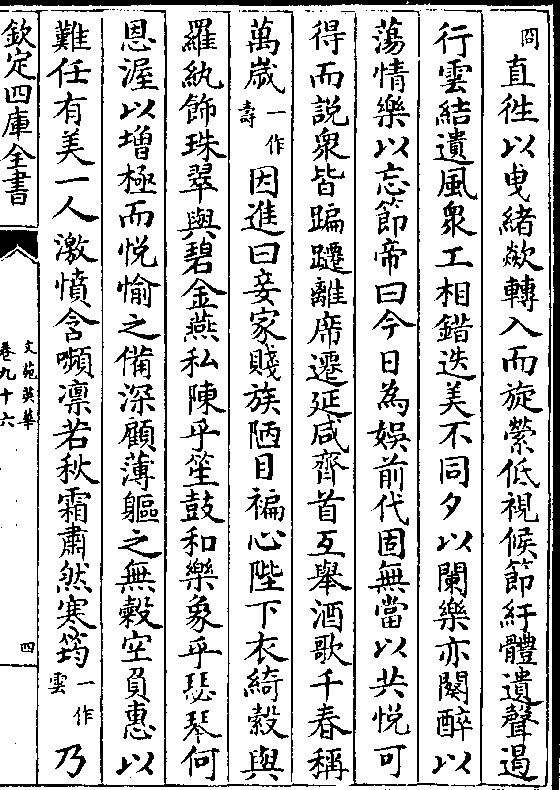 冏直徃以曳緒欻轉入而旋縈低視候節紆體遺聲遏
行雲結遺風衆工相錯迭美不同夕以闌樂亦闋醉以
蕩情樂以忘節帝曰今日為娛前代固無當以共悦可
得而説衆皆蹁躚離席遷延咸齊首互舉酒歌千春稱
萬歲一作壽因進曰妾家賤族陋目褊心陛下衣綺縠與
羅紈飾珠翠與碧金燕私陳乎笙鼓和樂象乎瑟琴何
恩渥以增極而悦愉之備深顧薄軀之無穀空負惠以
難任有美一人激憤含嚬凛若秋霜肅然寒筠一作雲乃
欽定四庫全書
文苑英華
卷九十六
四